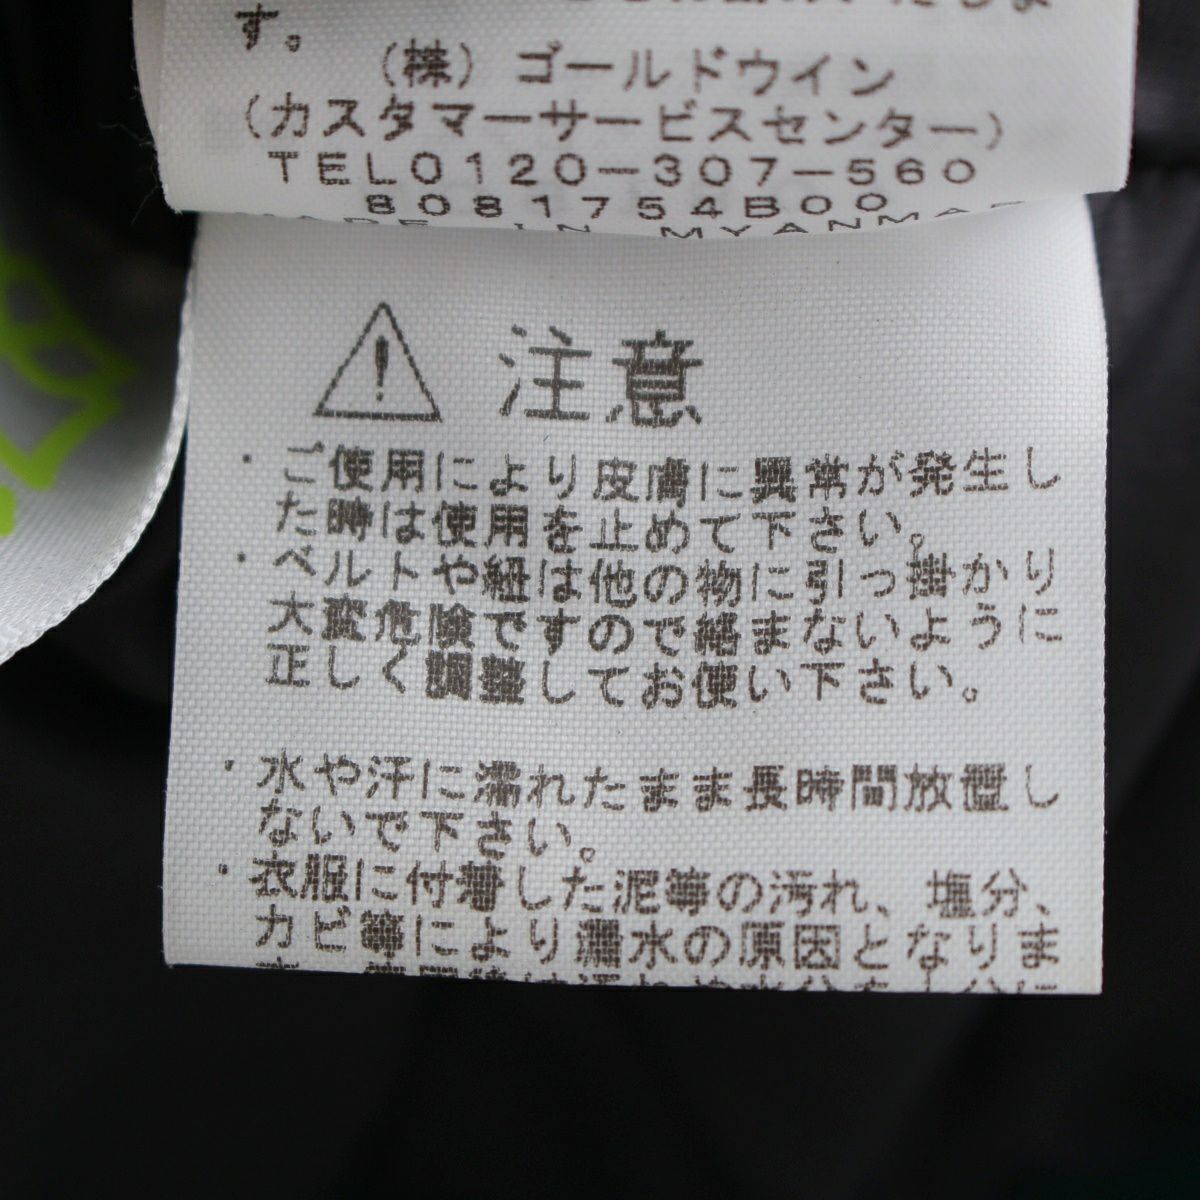 す。
(株) ゴールドウイン
(カスタマーサービスセンター)
TEL0120-307-560
8081754B00
MADE IN MYANMAR
注意
・ご使用により皮膚に異常が発生し
た時は使用を止めて下さい。
・ベルトや紐は他の物に引っ掛かり
大変危険ですので絡まないように
正しく調整してお使い下さい。
・水や汗に濡れたまま長時間放置し
ないで下さい。
・衣服に付着した泥等の汚れ、塩分、
カビ等により漏水の原因となりま